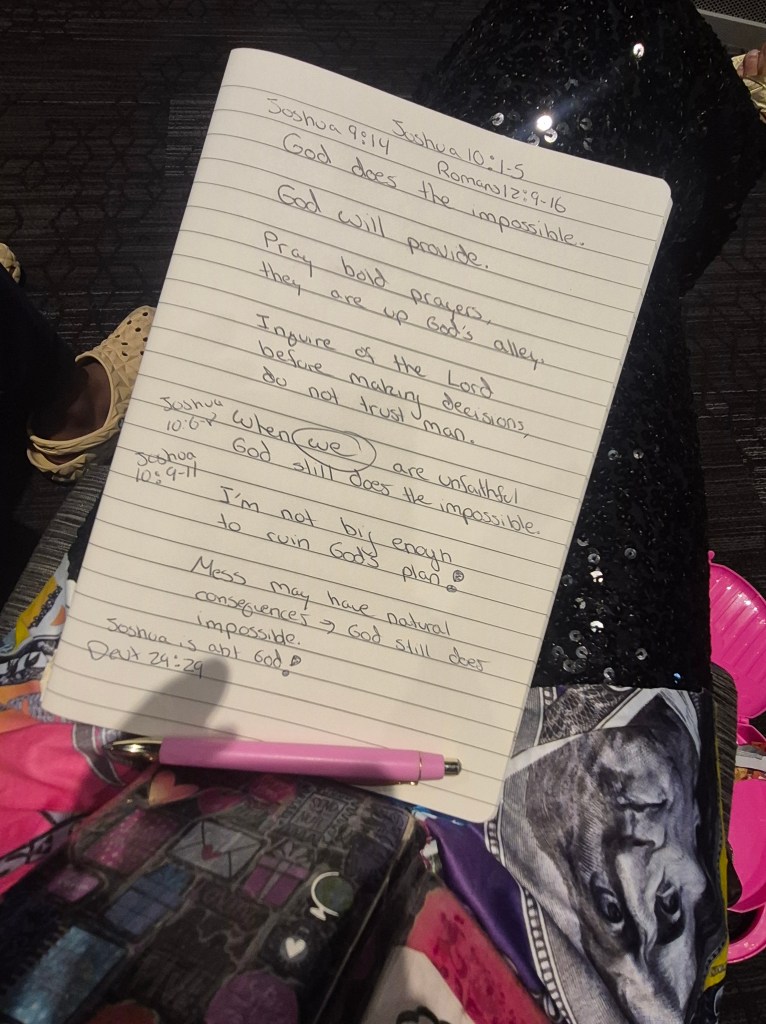 Joshua 9:14 Joshua 10:1-5
Romans 12:9-16
God does the impossible.
God will provide.
Pray bold prayers,
they are up God's alley.
Inquire of the Lord
before making decisions,
do not trust man.
Joshua
10:6-8
When we are unfaithful
God still does the impossible.
Joshua
10:9-11
I'm not big enogh
to ruin God's plan!
Mess may have natural
consequences → God still does
impossible.
Joshua is abt God!
Deut 29:29